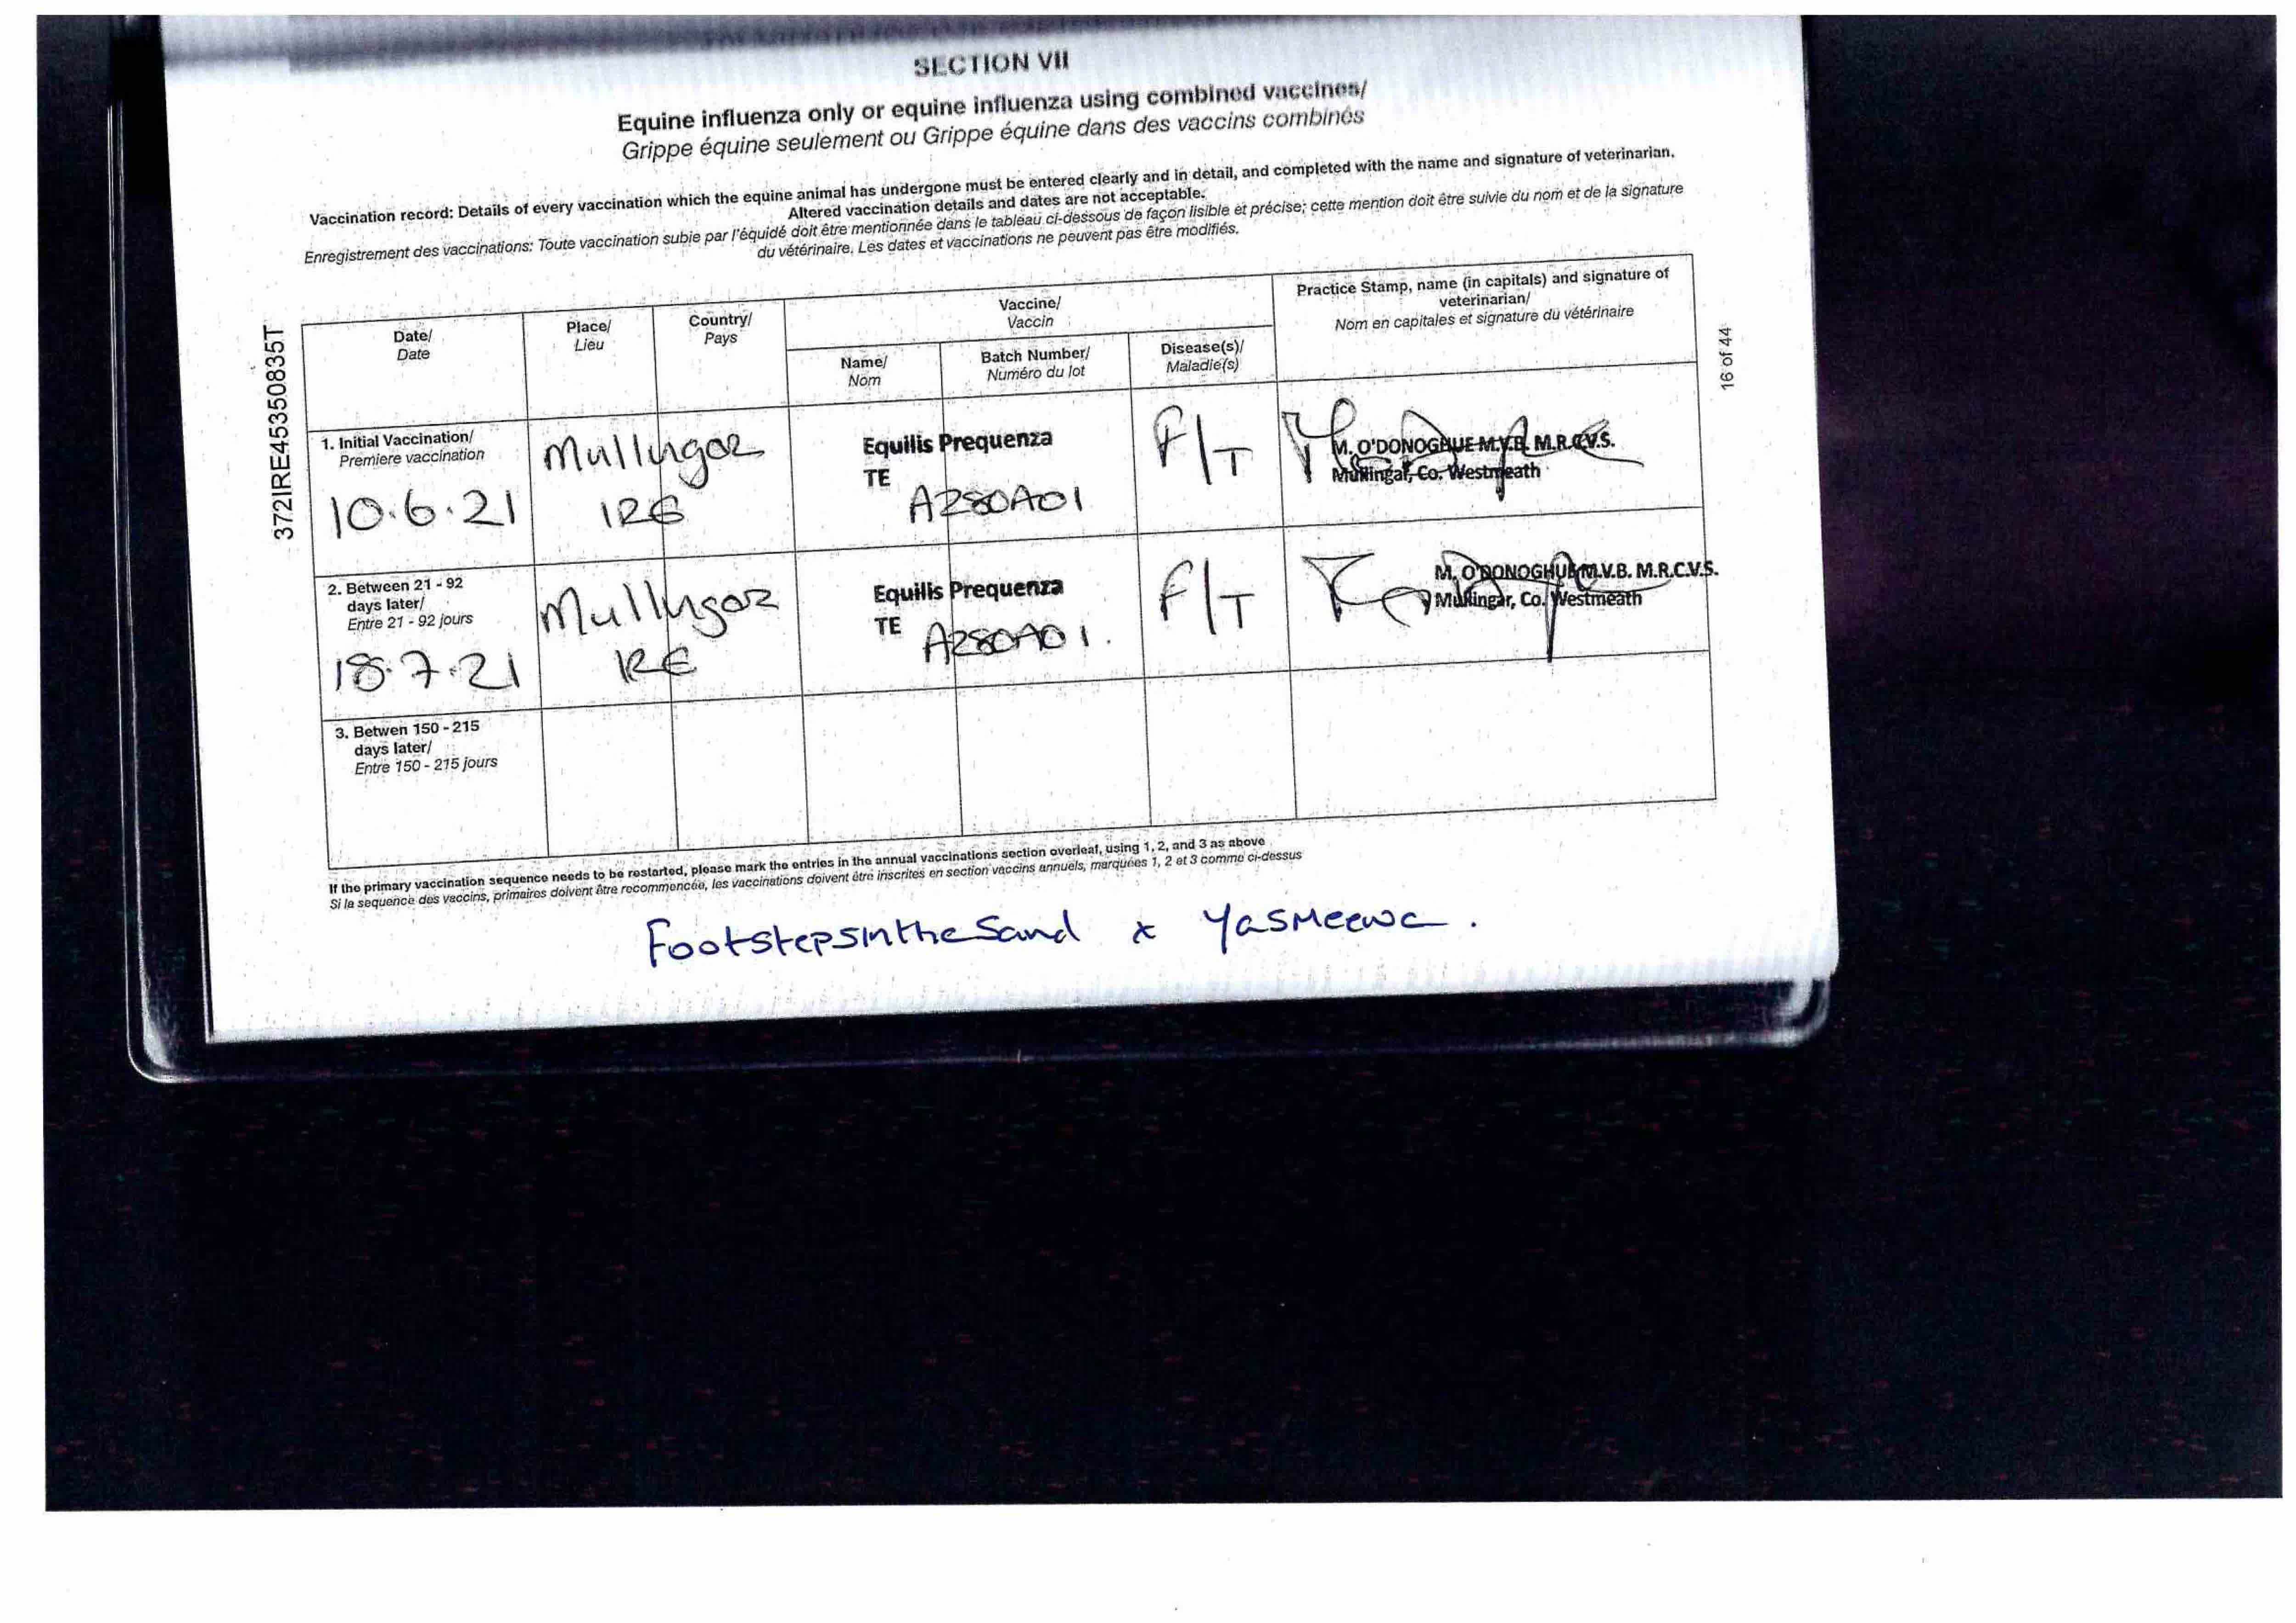 SECTION VII
Equine influenza only or equine influenza using combined vaccines/
Grippe équine seulement ou Grippe équine dans des vaccins combinés
Vaccination record: Details of every vaccination which the equine animal has undergone must be entered clearly and in detail, and completed with the name and signature of veterinarian.
Altered vaccination details and dates are not acceptable.
Enregistrement des vaccinations: Toute vaccination subie par l'équidé doit être mentionnée dans le tableau ci-dessous de façon lisible et précise; cette mention doit être suivie du nom et de la signature
du vétérinaire. Les dates et vaccinations ne peuvent pas être modifiés.
372IRE45350835T
16 of 44
Date/
Date
Place/
Lieu
Country/
Pays
Vaccine/
Vaccin
Name/
Nom
Batch Number/
Numéro du lot
Disease(s)/
Maladie(s)
Practice Stamp, name (in capitals) and signature of
veterinarian/
Nom en capitales et signature du vétérinaire
1. Initial Vaccination/
Premiere vaccination
10.6.21
Mullingar
IRE
Equilis Prequenza
TE
A280A01
F/T
M. O'DONOGHUE M.V.B. M.R.C.V.S.
Mullingar, Co. Westmeath
2. Between 21 - 92
days later/
Entre 21 - 92 jours
18.7.21
Mullingar
IRE
Equilis Prequenza
TE
A280A01.
F/T
M. O'DONOGHUE M.V.B. M.R.C.V.S.
Mullingar, Co. Westmeath
3. Betwen 150 - 215
days later/
Entre 150 - 215 jours
If the primary vaccination sequence needs to be restarted, please mark the entries in the annual vaccinations section overleaf, using 1, 2, and 3 as above
Si la sequence des vaccins, primaires doivent être recommencée, les vaccinations doivent être inscrites en section vaccins annuels, marquées 1, 2 et 3 comme ci-dessus
FootstepsintheSand x Yasmeena.